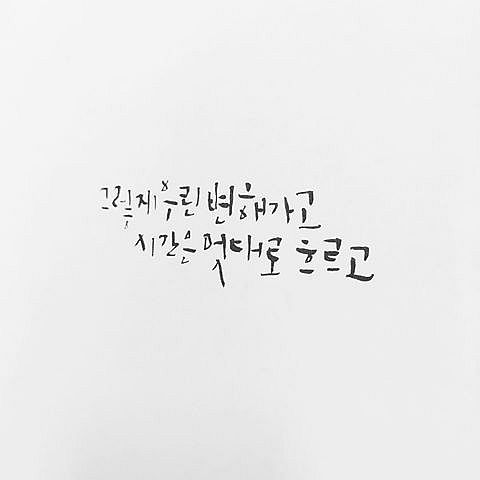 그렇게 우린 변해가고
시간은 멋대로 흐르고